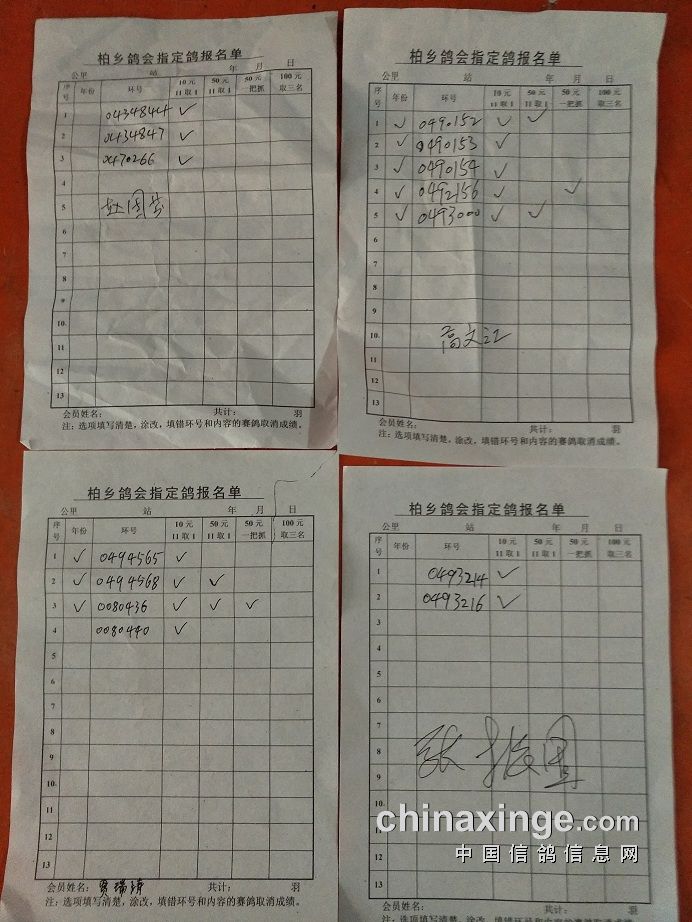 柏乡鸽会指定鸽报名单
公里 站 年 月 日
序号 年份 环号 10元11取1 50元11取1 50元一把抓 100元取三名
1 0434844 ✓
2 0434847 ✓
3 0470266 ✓
4
5
6
7
8
9
10
11
12
13
会员姓名: 共计: 羽
注:选项填写清楚,涂改,填错环号和内容的赛鸽取消成绩。
柏乡鸽会指定鸽报名单
公里 站 年 月 日
序号 年份 环号 10元11取1 50元11取1 50元一把抓 100元取三名
1 ✓ 0490152 ✓ ✓
2 ✓ 0490153 ✓
3 ✓ 0490154 ✓
4 ✓ 0492156 ✓ ✓
5 ✓ 0493000 ✓ ✓
6
7
8
9
10 高文江
11
12
13
会员姓名: 共计: 羽
注:选项填写清楚,涂改,填错环号和内容的赛鸽取消成绩。
柏乡鸽会指定鸽报名单
公里 站 年 月 日
序号 年份 环号 10元11取1 50元11取1 50元一把抓 100元取三名
1 ✓ 0494565 ✓
2 ✓ 0494568 ✓ ✓
3 ✓ 0080436 ✓ ✓ ✓
4 0080440 ✓
5
6
7
8
9
10
11
12
13
会员姓名: 共计: 羽
注:选项填写清楚,涂改,填错环号和内容的赛鸽取消成绩。
柏乡鸽会指定鸽报名单
公里 站 年 月 日
序号 年份 环号 10元11取1 50元11取1 50元一把抓 100元取三名
1 0493214 ✓
2 0493216 ✓
3
4
5
6
7
8 张振国
9
10
11
12
13
会员姓名: 共计: 羽
注:选项填写清楚,涂改,填错环号和内容的赛鸽取消成绩。
chinaxinge.com
中国信鸽信息网